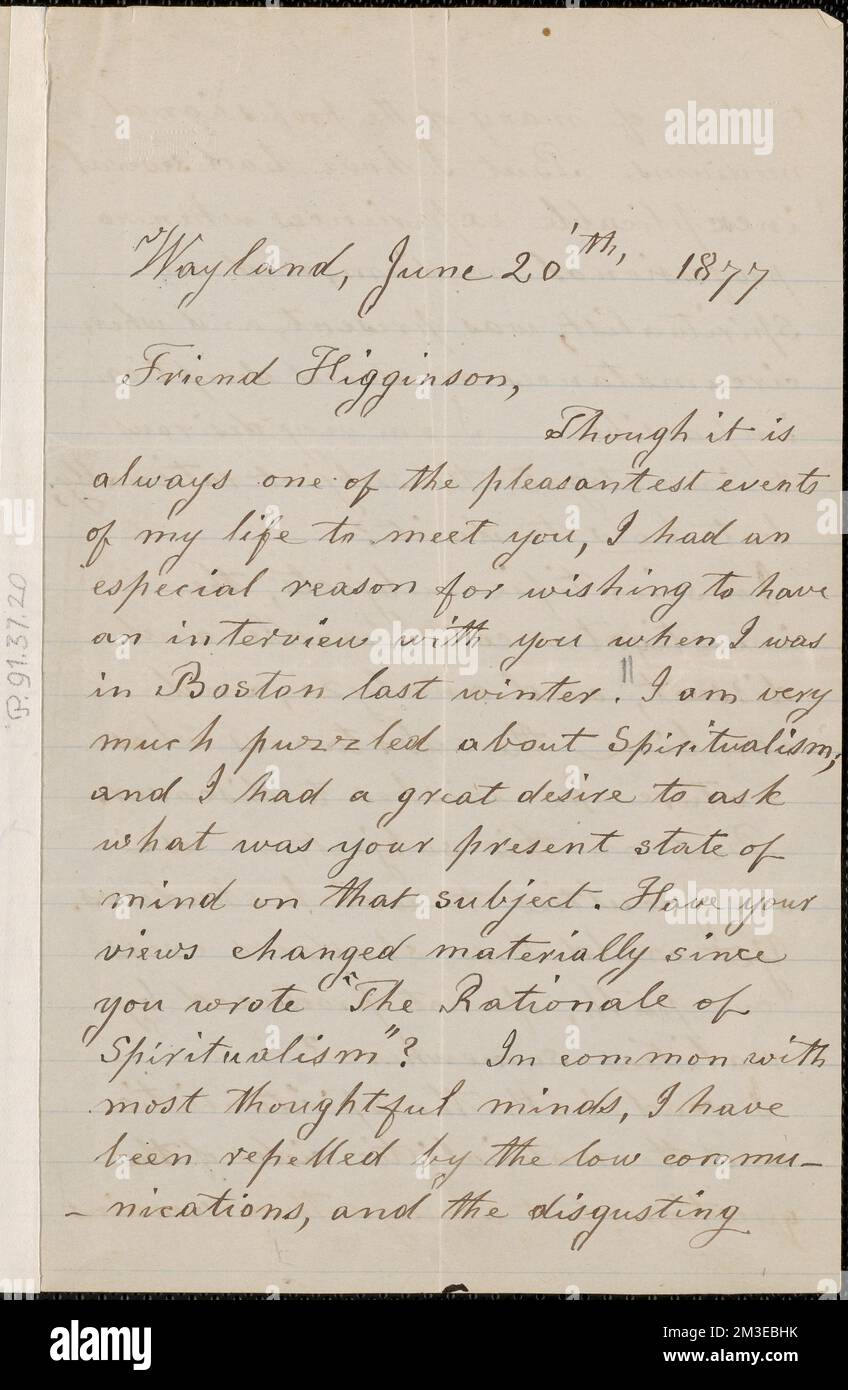 Wayland, June 20'th, 1877
Friend Higginson,
Though it is
always one of the pleasantest events
of my life to meet you, I had an
especial reason for wishing to have
an interview with you when I was
in Boston last winter. I am very
much puzzled about Spiritualism;
and I had a great desire to ask
what was your present state of
mind on that subject. Have your
views changed materially since
you wrote "The Rationale of
Spiritualism"? In common with
most thoughtful minds, I have
been repelled by the low commu-
-nications, and the disgusting
P.91.37.20
alamy
alamy
Image ID: 2M3EBHK
www.alamy.com